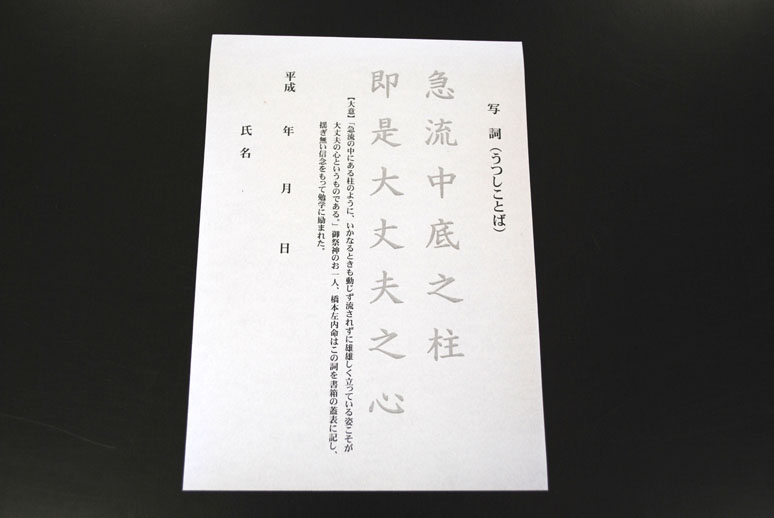 写 詞（うつしことば）
急流中底之柱
即是大丈夫之心
【大意】「急流の中にある柱のように、いかなるときも動じず流されずに雄雄しく立っている姿こそが
大丈夫の心というものである。」御祭神のお一人、橋本左内命はこの詞を書箱の蓋表に記し、
揺ぎ無い信念をもって勉学に励まれた。
平成　年　月　日
氏名